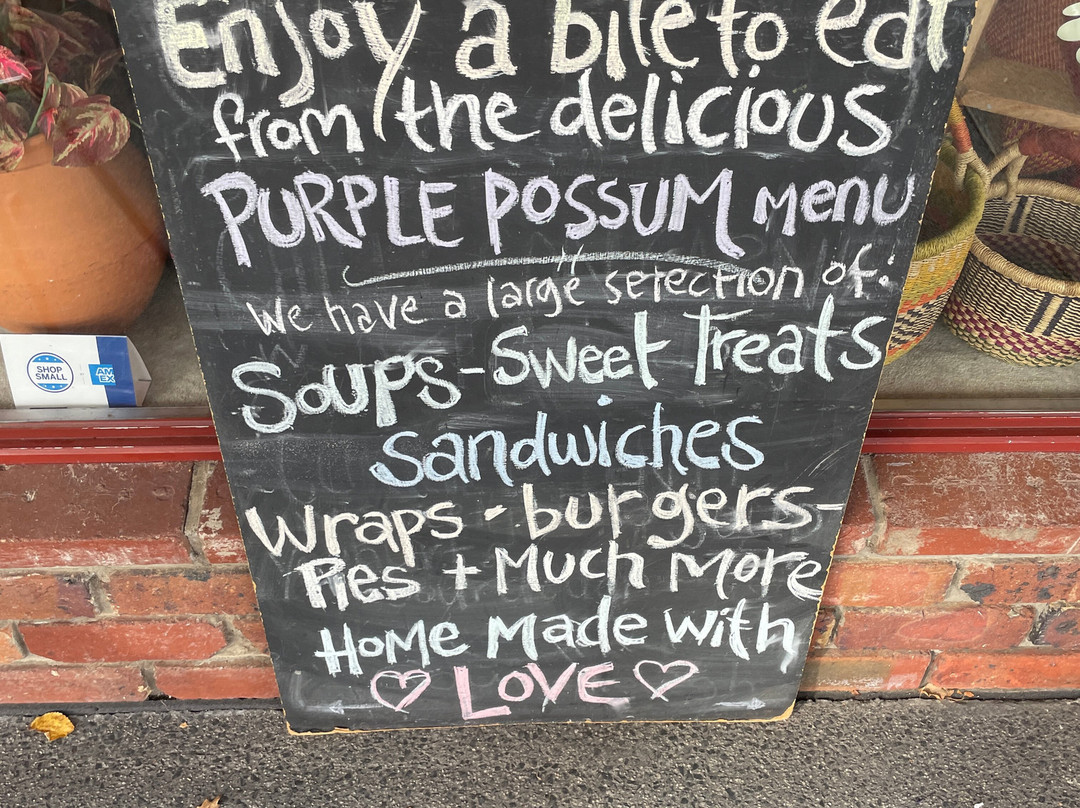 Enjoy a bite to eat
from the delicious
PURPLE POSSUM menu
We have a large selection of:
Soups - Sweet Treats
Sandwiches
Wraps - burgers -
Pies + Much More
Home Made with
♡ LOVE ♡
SHOP
SMALL
AM
EX